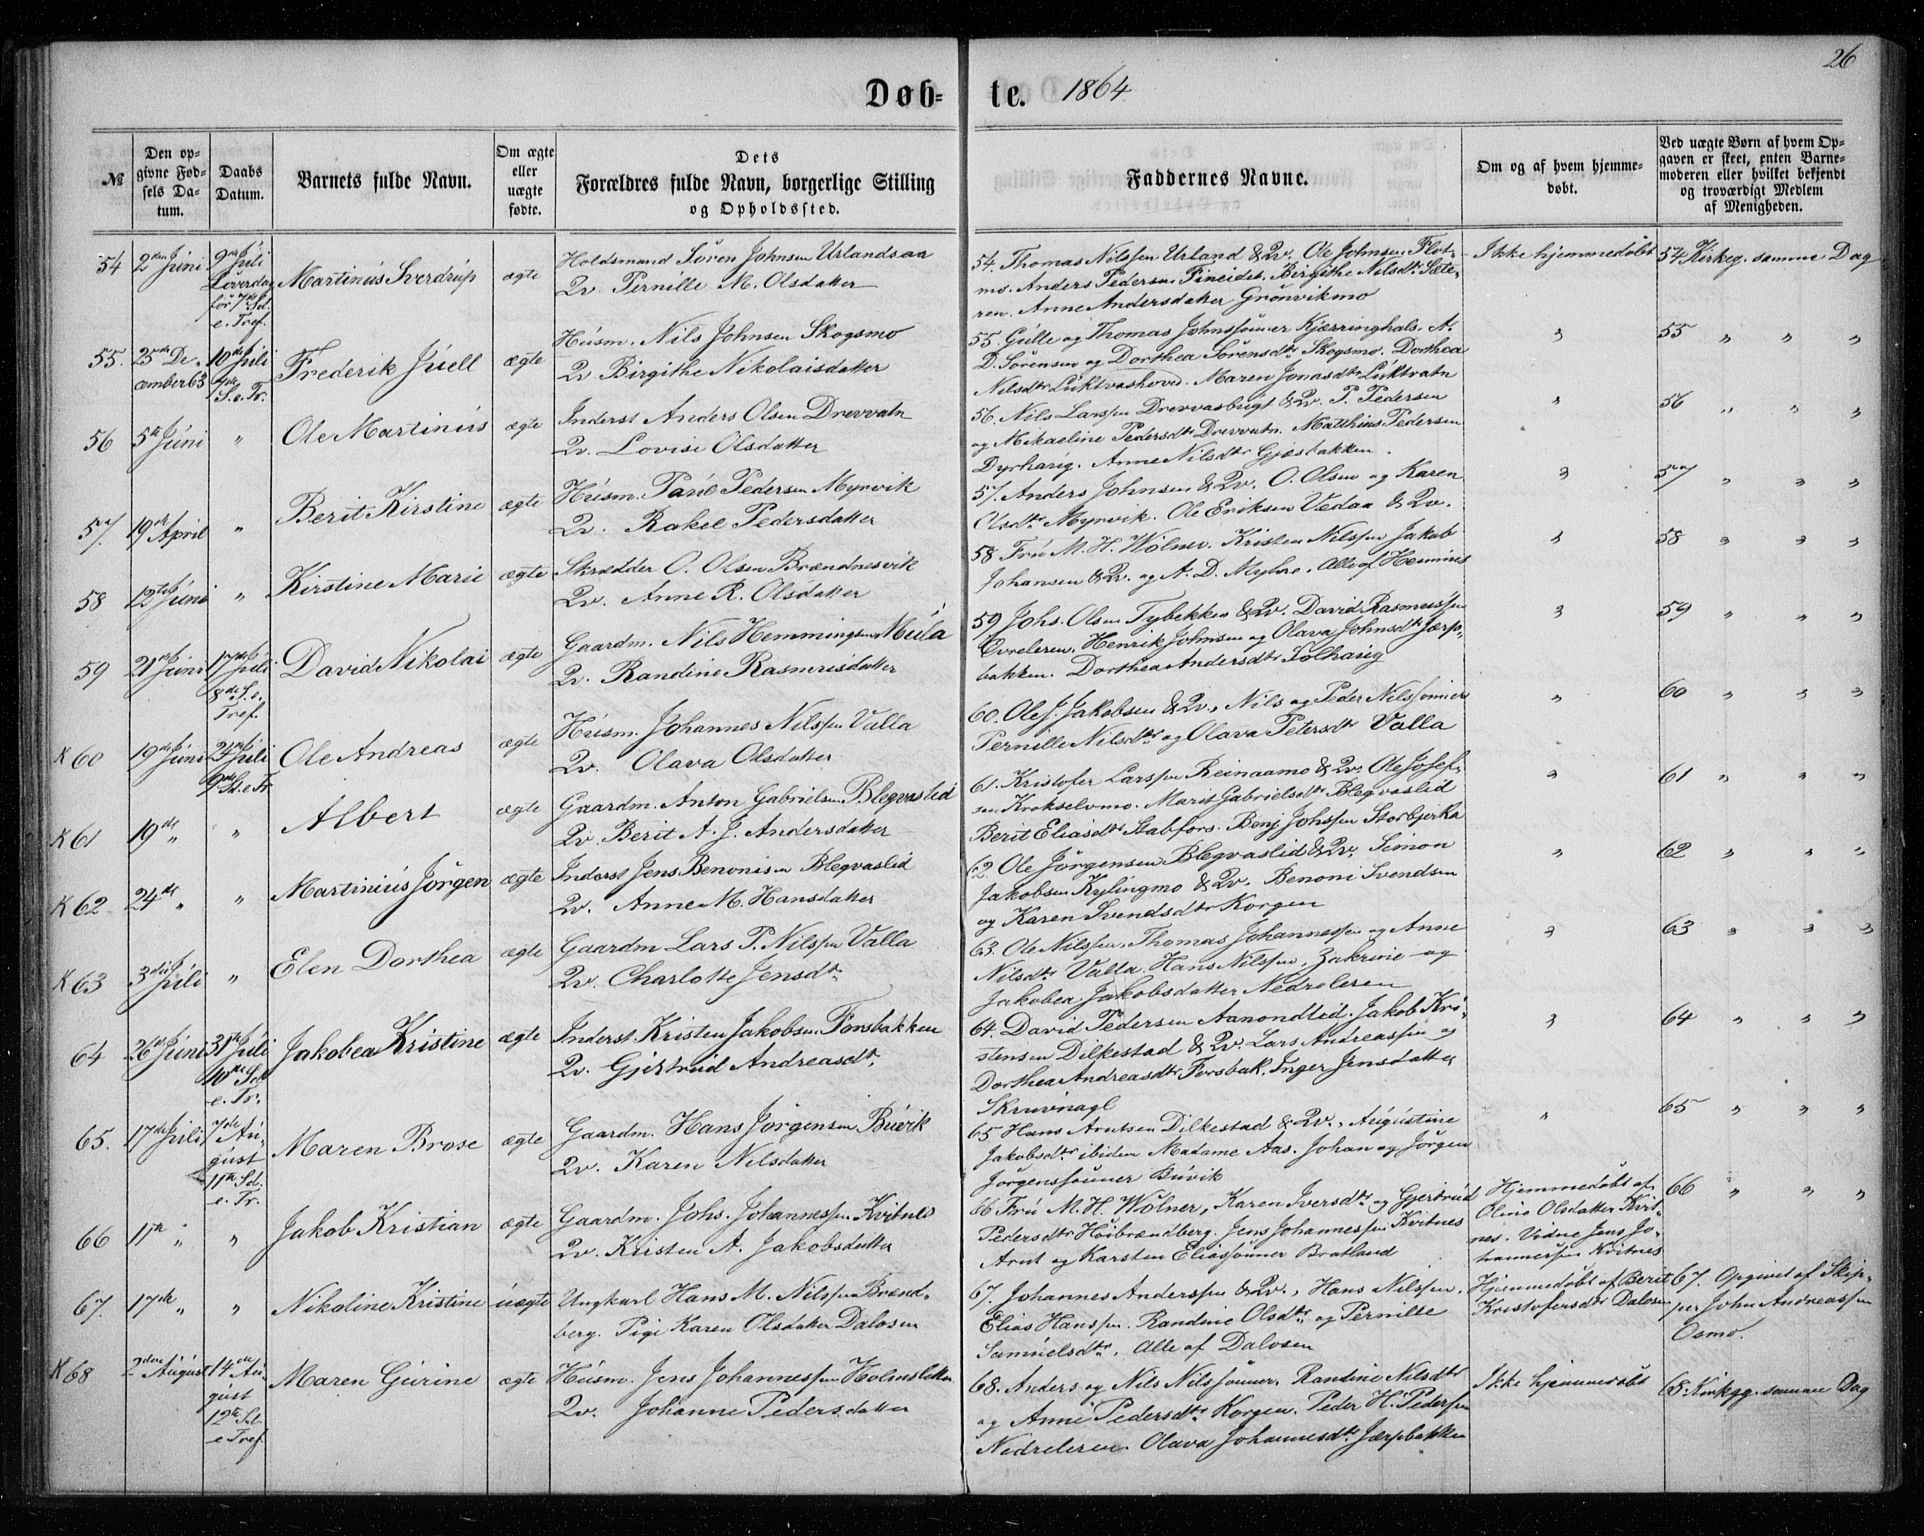 26
Døb= te. 1864
№
Den op=
givne Fød=
sels Da=
tum.
Daabs
Datum.
Barnets fulde Navn.
Om ægte
eller
uægte
fødte.
Dets
Forældres fulde Navn, borgerlige Stilling
og Opholdssted.
Faddernes Navne.
Om og af hvem hjemme=
døbt.
Ved uægte Børn af hvem Op=
gaven er skeet, enten Barne=
moderen eller hvilket bekjendt
og troværdigt Medlem
af Menigheden.
54 2den Juni 9de Juli
Løverdag
før 7de Sd.
e. Tref.
Martinus Sverdrup ægte
Holdsmand Søren Johnsen Urlandsaa
Qv. Pernille M. Olsdatter
54. Thomas Nilssen Urland & Qv. Ole Johnsen Flot-
mo. Anders Pedersen Fineidet. Birgithe Nilsdtr Sete-
ren. Anne Andersdatter Grønvikmo
Ikke hjemmedøbt
54 Kirkeg. samme Dag
55. 25de De-
cember 63
10de Juli
7de
S. e. Tr.
Frederik Juell ægte
Husm. Nils Johnsen Skogsmo
Qv. Birgithe Nikolaisdatter
55. Gulle og Thomas Johnssønner Kjærringhals. A.
D. Sørensen og Dorthea Sørensdtr Skogsmo. Dorthea
Nilsdtr Luktvashoved. Maren Jonasdtr Luktvatn
" 55 " " "
56 5te Juni " Ole Martinus ægte
Inderst Anders Olsen Drevvatn
Qv. Lovise Olsdatter
56. Nils Larssen Drevvasbugt & Qv. P. Pedersen
og Mikaeline Pedersdtr Drevvatn. Matthias Pedersen
Dyrhaug. Anne Nilsdtr Gjæsbakken.
" 56 " " "
57. 19de April " Berit Kirstine ægte
Husm. Paul Pedersen Myrvik
Qv. Rakel Pedersdatter
57. Anders Johnsen & Qv. O. Olsen og Karen
Olsdtr Myrvik. Ole Eriksen Vedaa & Qv.
" 57 " " "
58 12te Juni " Kirstine Marie ægte
Skrædder O. Olsen Brændnesvik
Qv. Anne R. Olsdatter
58 Fru M. H. Wolner. Kristen Nilssen Jakob
Johansen & Qv. og A. D. Myhre. Alle af Hemnes
" 58 " " "
59 21de Juni 17de Juli
8de S. e.
Tref.
David Nikolai ægte
Gaardm. Nils Hemmingsen Mula
Qv. Randine Rasmusdatter
59 Johs. Olsen Tybekken & Qv. David Rasmussen
Øvreleren. Henrik Johnsen og Olava Johnsdtr Jærp-
bakken. Dorthea Andersdtr Solhaug
" 59 " " "
K 60 19de Juni 24de Juli
9de Sd. e. Tr.
Ole Andreas ægte
Husm. Johannes Nilssen Valla
Qv. Olava Olsdatter
60. Ole J. Jakobsen & Qv., Nils og Peder Nilssønner
Pernille Nilsdtr og Olava Petersdtr Valla
" 60 " " "
K 61 19de " " Albert ægte
Gaardm. Anton Gabrielsen Blegvaslid
Qv. Berit A. J. Andersdatter
61. Kristofer Larssen Reinaamo & Qv. Ole Josef-
sen Krokselvmo. Marit Gabrielsdtr Blegvaslid
Berit Eliasdtr Stabfors. Benj. Johssen Storbjerka
" 61 " " "
K 62 24de " " Martinus Jørgen ægte
Inderst Jens Benonisen Blegvaslid
Qv. Anne M. Hansdatter
62 Ole Jørgensen Blegvaslid & Qv. Simon
Jakobsen Kylingmo & Qv. Benoni Svendsen
og Karen Svendsdtr Korgen
" 62 " " "
K 63 3die Juli " Elen Dorthea ægte
Gaardm Lars P. Nilssen Valla
Qv. Charlotte Jensdtr
63. Ole Nilssen, Thomas Johannessen og Anne
Nilsdtr Valla. Hans Nilssen, Zakrine og
Jakobea Jakobsdatter Nedreleren
" 63 " " "
64 26de Juni 31te Juli
10de Sd.
e. Tr.
Jakobea Kristine ægte
Inderst Kristen Jakobsen Forsbakken
Qv. Gjertrud Andreasdtr
64. David Pedersen Aanondlid. Jakob Kri-
stensen Dilkestad & Qv. Lars Andreassen og
Dorthea Andreasdtr Forsbak. Inger Jensdatter
Skruvnagl
" 64 " " "
65. 17de Juli 7de Au-
gust
11te Sd.
e. Tr.
Maren Brose ægte
Gaardm. Hans Jørgensen Buvik
Qv. Karen Nilsdatter
65 Hans Arntsen Dilkestad & Qv. Augustine
Jakobsdtr ibiden Madame Aas. Johan og Jørgen
Jørgenssønner Buvik
" 65 " " "
66 11te " " Jakob Kristian ægte
Gaardm. Johs. Johannessen Kvitnes
Qv. Kristen A. Jakobsdatter
66 Fru M. H. Wolner, Karen Iversdtr og Gjertrud
Pedersdtr Høibrændberg. Jens Johannessen Kvitnes
Arnt og Karsten Eliassønner Bratland
Hjemmedøbt af
Oline Olsdatter Kvit-
nes. Vidne Jens Jo-
hannessen Kvitnes
66 " " "
67. 17de " " Nikoline Kristine uægte
Ungkarl Hans M. Nilssen Brænd-
berg. Pige Karen Olsdatter Dalosen
67. Johannes Anderssen & Qv., Hans Nilssen,
Elias Hanssen. Randine Olsdtr og Pernille
Samuelsdtr. Alle af Dalosen
Hjemmedøbt af Berit
Kristofersdtr Dalosen
67. Opgivet af Skip-
per John Andreassen
Osmo.
K 68 2den August 14de Au-
gust
12te Sd.
e Tref.
Maren Gurine ægte
Husm. Jens Johannessen Holmsletten
Qv. Johanne Pedersdatter
68. Anders og Nils Nilssønner. Randine Nilsdtr
og Anne Pedersdtr Korgen. Peder H. Pedersen
Nedreleren. Olava Johannesdtr Jærpbakken
Ikke hjemmedøbt
68. Kirkegg. samme Dag